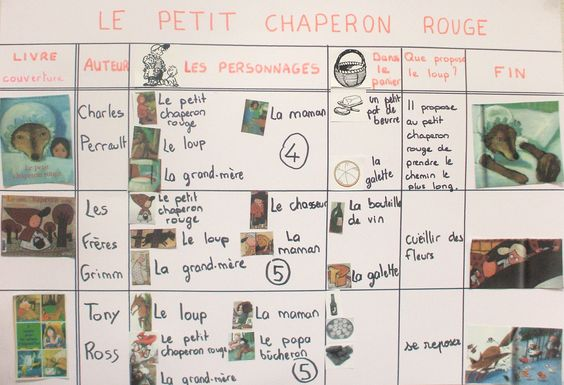 LE PETIT CHAPERON ROUGE
LIVRE
couverture
AUTEUR
LES PERSONNAGES
Dans
le
panier
Que propose
le loup ?
FIN
Le petit
chaperon rouge
Charles
Perrault
Le petit
chaperon
rouge
La maman
Le loup
La grand-mère
4
un petit
pot de
beurre
la
galette
Il propose
au petit
chaperon
rouge de
prendre le
chemin le
plus long.
Les
Frères
Grimm
Le petit
chaperon
rouge
Le chasseur
Le loup
La
maman
La grand-mère
5
La bouteille
de vin
La galette
cuëillir des
fleurs
Tony
Ross
Le loup
La maman
Le petit
chaperon rouge
Le papa
bûcheron
La grand-mère
5
se reposer